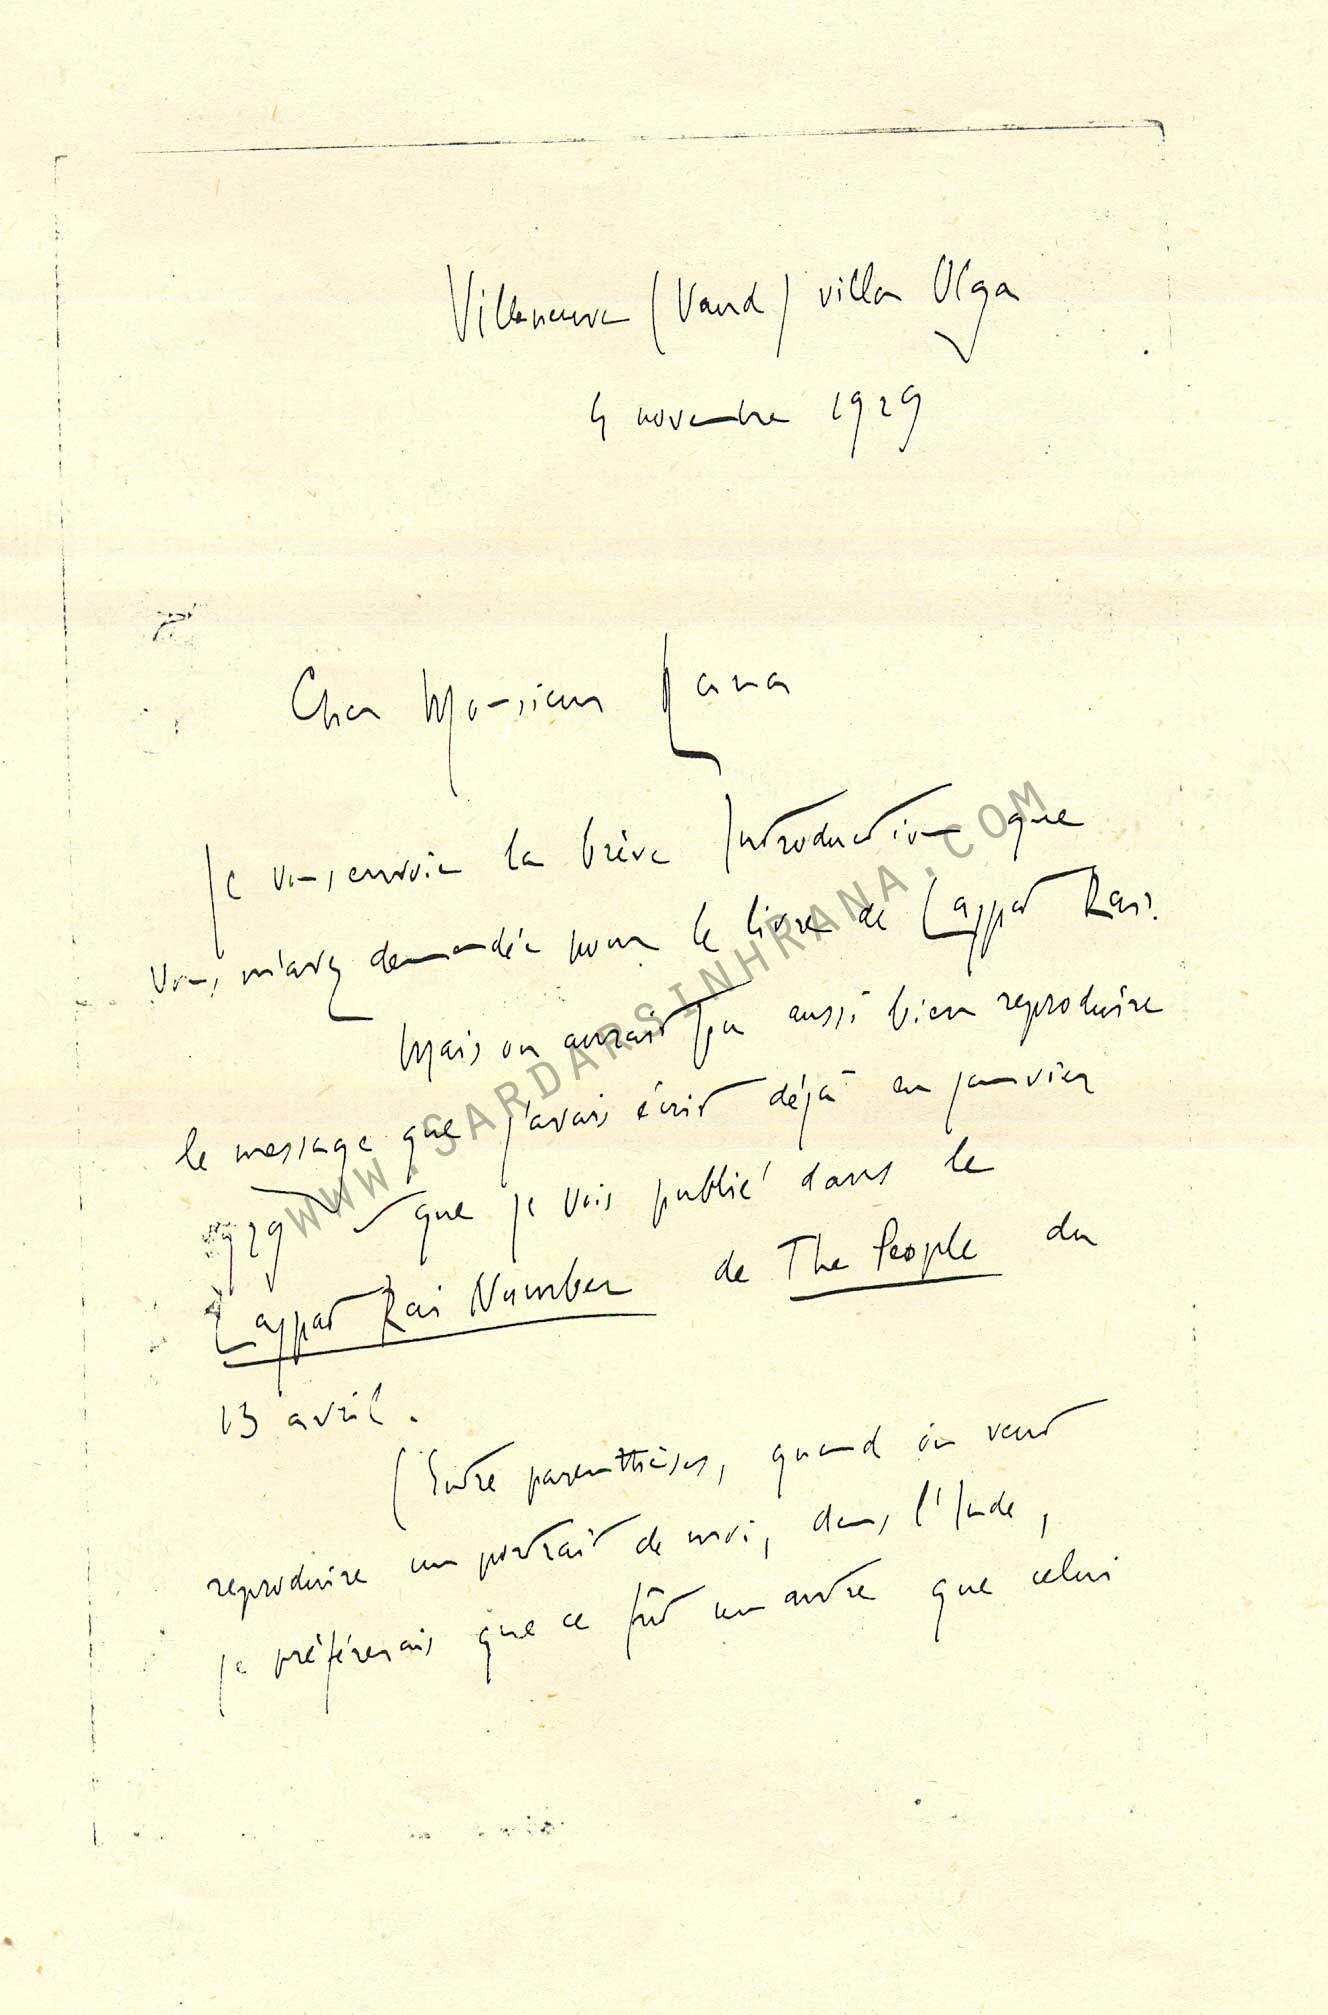 Villeneuve (Vaud) villa Olga
4 novembre 1929
Cher Monsieur Rana
Je vous envoie la brève Introduction que
vous m'avez demandée pour le livre de Lajpat Rai.
Mais on aurait pu aussi bien reproduire
le message que j'avais écrit déjà en janvier
1929 que je vois publié dans le
Lajpat Rai Number de The People du
13 avril.
(Entre parenthèses, quand on veut
reproduire un portrait de moi, dans l'Inde,
je préférerais que ce fût un autre que celui
WWW.SARDARSINHRANA.COM